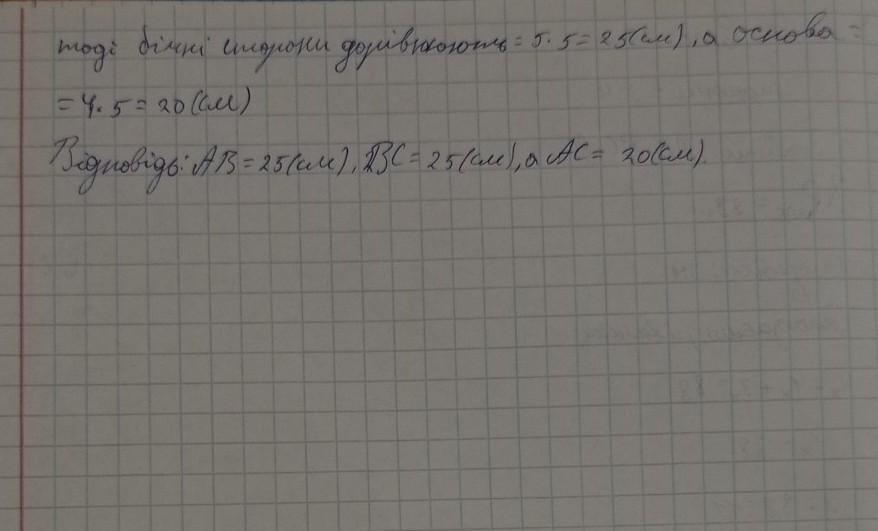 тоді бічні сторони дорівнюють = 5 · 5 = 25(см), а основа =
= 4 · 5 = 20(см)
Відповідь: AB = 25(см), BC = 25(см), а AC = 20(см).